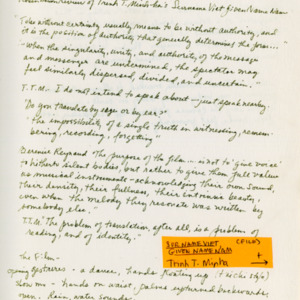 review of Trinh T. Minh-ha's Surname Viet Given Name Nam
"To be without certainty usually means to be without authority, and
it is the position of authority that generally determines the form...
"When the singularity, unity, and authority of the message
and messenger are undermined, the spectator may
feel similarly dispersed, divided, and uncertain."
T.T.M. I do not intend to speak about — just speak nearby
"Do you translate by eye or by ear?"
"The impossibility of a single truth in witnessing, remem-
bering, recording, forgetting"
The purpose of the film... is not to 'give voice'
to hitherto silent bodies, but rather to give them full value
as musical instruments - acknowledging their own sound,
their density, their fullness, their intonous beauty,
even when the melody they resonate was written by
somebody else."
T.T.M. "The problem of translation, after all, is a problem of
reading, and of identity."
SURNAME VIET
GIVEN NAME NAM
Trinh T. Minha
The Film -
opening gestures - a dance, hands floating up
hands on waist, palms upturned backwards
over. Rain, water sounds